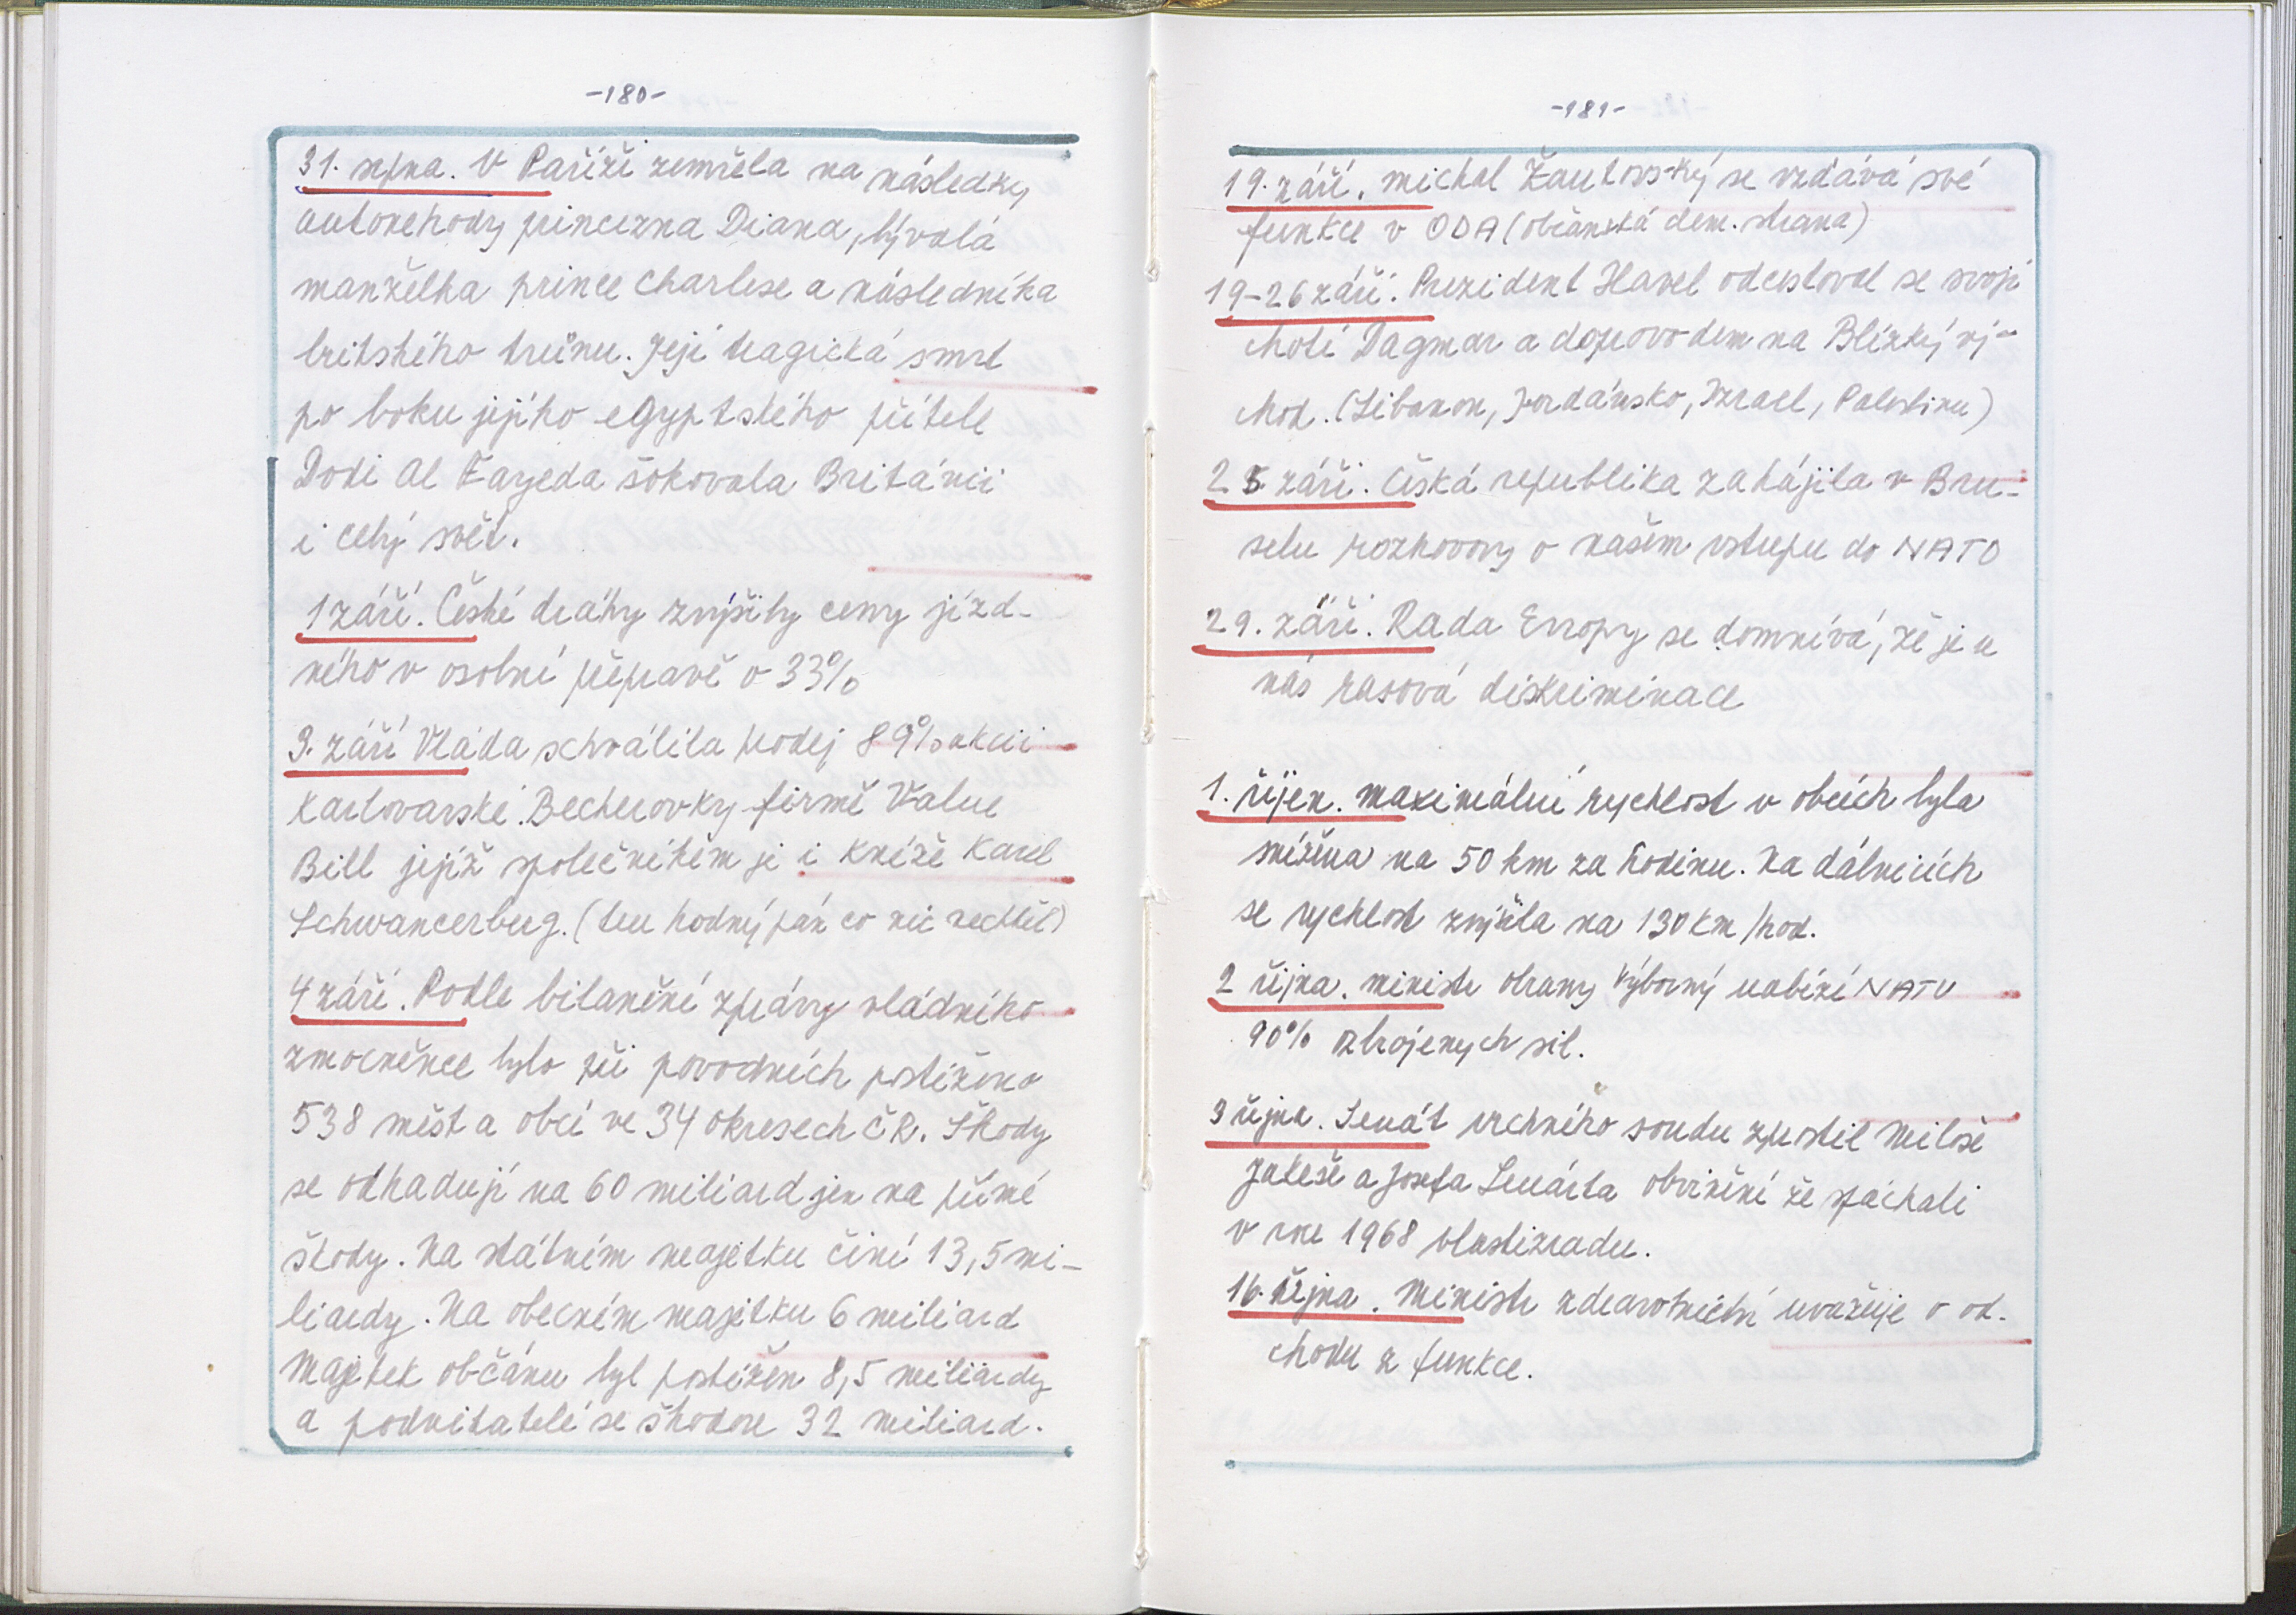 -180-
31. srpna. V Paříži zemřela na následky
autonehody princezna Diana, bývalá
manželka prince Charlese a následníka
britského trůnu. Její tragická smrt
po boku jejího egyptského přítele
Dodi Al Fayeda šokovala Británii
i celý svět.
1 září. České dráhy zvýšily ceny jízd-
ného v osobní přepravě o 33%
3. září Vláda schválila prodej 89% akcii
Karlovarské Becherovky firmě Value
Bill jejíž společníkem je i kníže Karel
Schwancerberg. (ten hodný pán co nic nechtěl)
4 září. Podle bilanční zprávy vládního
zmocněnce bylo při povodních postiženo
538 měst a obcí ve 34 okresech ČR. Škody
se odhadují na 60 miliard jen na přímé
škody. Na státním majetku činí 13,5 mi-
liardy. Na obecním majetku 6 miliard
Majetek občánu byl postižen 8,5 miliardy
a podnikatelé se škodou 32 miliard.
-181-
19. září. Michal Žantovský se vzdává své
funkce v ODA (občanská dem. strana)
19-26 září. Prezident Havel odcestoval se svojí
chotí Dagmar a doprovodem na Blízký vý-
chod. (Libanon, Jordánsko, Izrael, Palestinu)
25 září. Česká republika zahájila v Bru-
selu rozhovory o našem vstupu do NATO
29. září. Rada Evropy se domnívá, že je u
nás rasová diskriminace
1. říjen. Maximální rychlost v obcích byla
snížena na 50 km za hodinu. Na dálnicích
se rychlost zvýšila na 130 km/hod.
2 října. Ministr obrany Výborný nabízí NATO
90% ozbrojenych sil.
3 října. Senát vrchního soudu zprostil Miloše
Jakeše a Josefa Lenárta obvinění že spáchali
v roce 1968 vlastizradu.
16. října. Ministr zdravotnictví uvažuje o od-
chodu z funkce.